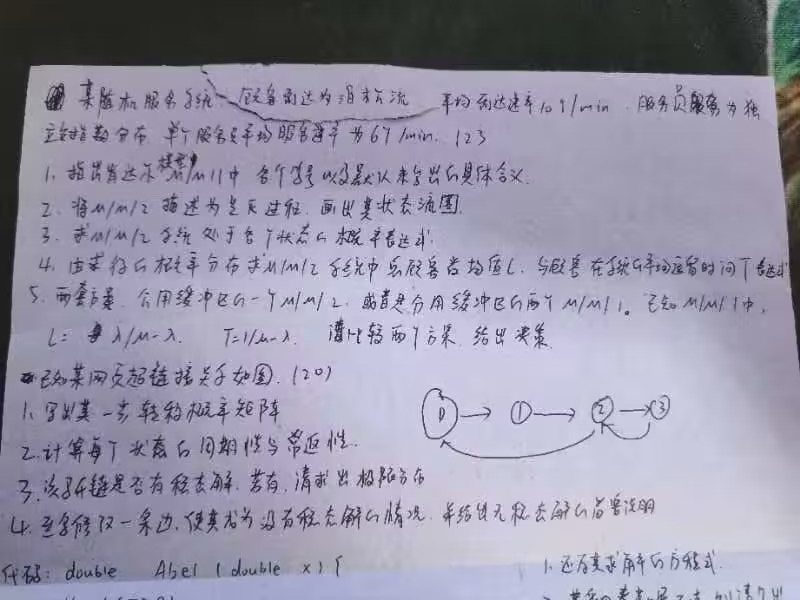 某随机服务系统, 顾客到达为泊松流 平均到达速率10个/min, 服务员服务为独
立负指数分布, 单个服务员平均服务速率为6个/min. (25
1. 指出肯达尔模型M/M/1中 各个字号以及默认未写出的具体含义.
2. 将M/M/2 描述为生灭过程, 画出其状态流图.
3. 求M/M/2系统处于各个状态的概率表达式.
4. 由求得的概率分布求M/M/2系统中总顾客当均值L, 与顾客在系统的平均逗留时间T表达式
5. 两套方案, 公用缓冲区的一个M/M/2, 或者是分用缓冲区的两个M/M/1。已知M/M/1中,
L= λ/μ-λ. T=1/μ-λ. 请比较两个方案, 给出决策.
已知某网页超链接关系如图. (20)
1. 写出其一步转移概率矩阵
0 1 2 3
2. 计算每个状态的周期性与常返性.
3. 该马链是否有稳态解, 若有, 请求出极限分布
4. 至多修改一条边, 使其成为没有稳态解的情况, 并给出无稳态解的简要说明
代码: double Abel (double x) {
1. 还原其求解的方程式.